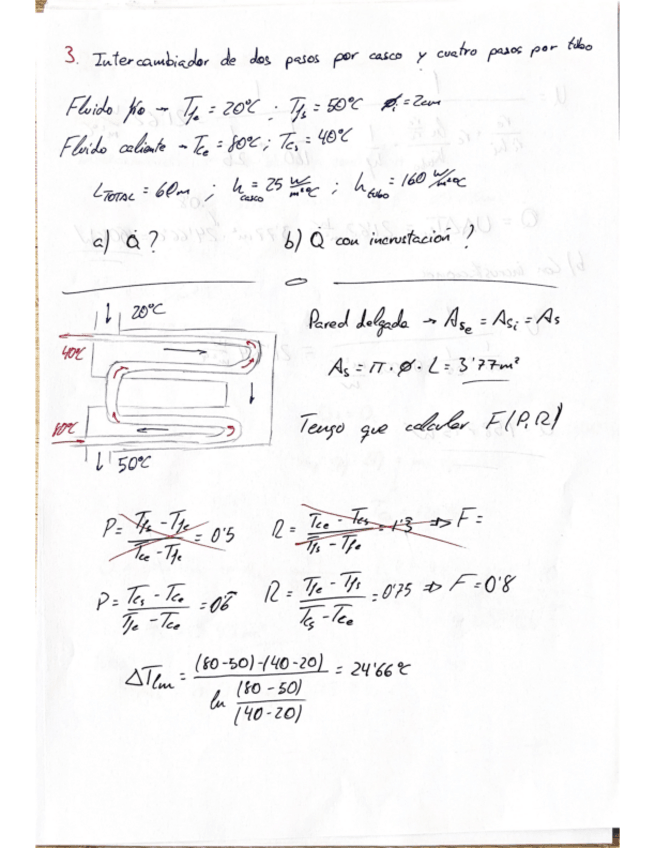 3. Intercambiador de dos pasos por casco y cuatro pasos por tubo
Fluido frío → Tfe = 20ºC ; Tfs = 50ºC øi = 2cm
Fluido caliente → Tce = 80ºC ; Tcs = 40ºC
LTOTAL = 60m ; hcasco = 25 W/m²ºC ; htubo = 160 W/m²ºC
a) Q̇ ? b) Q̇ con incrustación ?
20ºC
40ºC
80ºC
50ºC
Pared delgada → Ase = Asi = As
As = π · ø · L = 3'77m²
Tengo que calcular F(P,R)
P = (Tfs - Tfe) / (Tce - Tfe) = 0'5 R = (Tce - Tcs) / (Tfs - Tfe) = 1'3 ⇒ F =
P = (Tcs - Tce) / (Tfe - Tce) = 0'6̄ R = (Tfe - Tfs) / (Tcs - Tce) = 0'75 ⇒ F = 0'8
ΔTlm = ((80-50)-(40-20)) / (ln (80-50)/(40-20)) = 24'66ºC